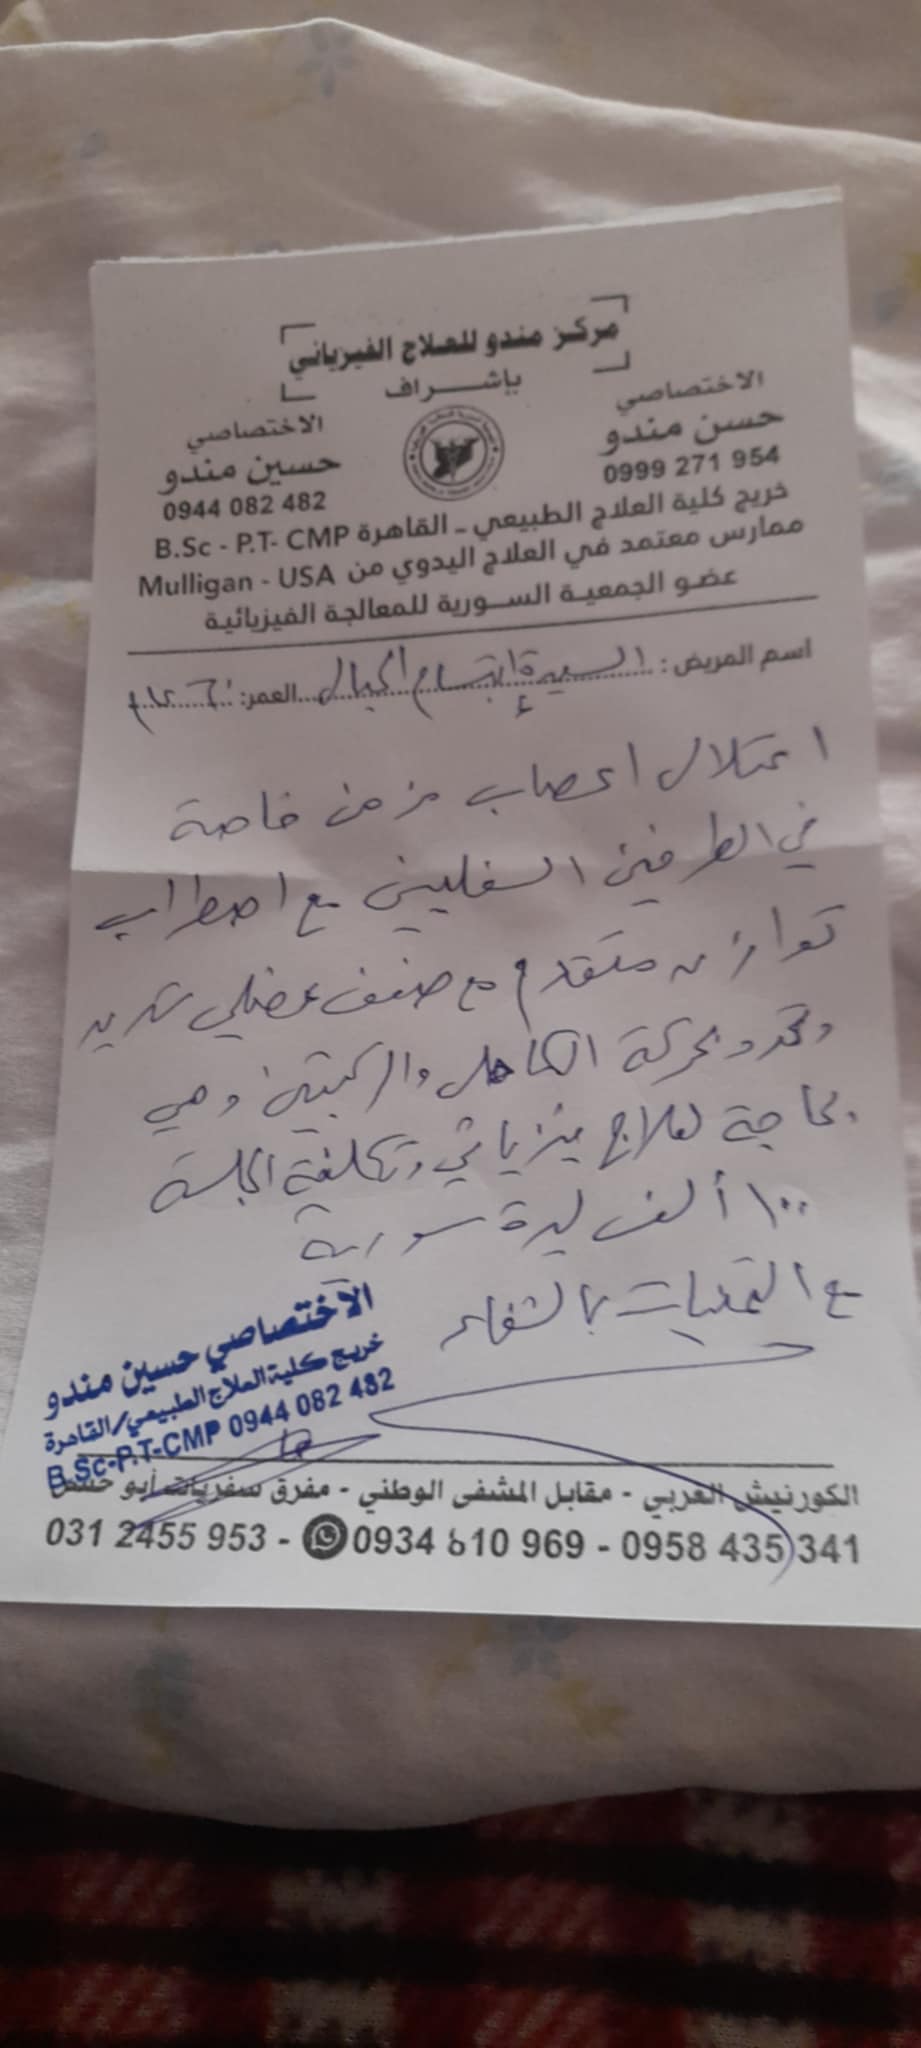 مركز مندو للعلاج الفيزيائي
بإشراف
الاختصاصي
حسن مندو
0999 271 954
الاختصاصي
حسين مندو
0944 082 482
خريج كلية العلاج الطبيعي - القاهرة B.Sc - P.T- CMP
ممارس معتمد في العلاج اليدوي من Mulligan - USA
عضو الجمعية السورية للمعالجة الفيزيائية
اسم المريض: السيدة إبتسام الجبالي العمر:
اعتلال اعصاب مزمن خاصة
في الطرفين السفليين مع اضطراب
توازن متقدم مع ضعف عضلي شديد
وتحدد بحركة الكاحل والركبتين وهي
بحاجة لعلاج فيزيائي وتكلفة الجلسة
١٠٠ ألف ليرة سورية
مع التمنيات بالشفاء
الاختصاصي حسين مندو
خريج كلية العلاج الطبيعي/القاهرة
B.Sc-P.T-CMP 0944 082 482
الكورنيش الغربي - مقابل المشفى الوطني - مفرق سفريات أبو حسن
031 2455 953 - 0934 610 969 - 0958 435 341